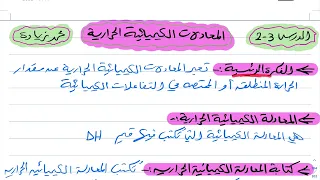 الدرس 3-2 المعادلات الكيميائية الحرارية
الفكرة الرئيسية :- تعبر المعادلات الكيميائية الحرارية عن مقدار
الحرارة المنطلقة أو الممتصة في التفاعلات الكيميائية
المعادلة الكيميائية الحرارية :-
هي المعادلة الكيميائية التي تكتب فيها قيم DH
كتابة المعادلة الكيميائية الحرارية :- تكتب المعادلة الكيميائية الحرارية